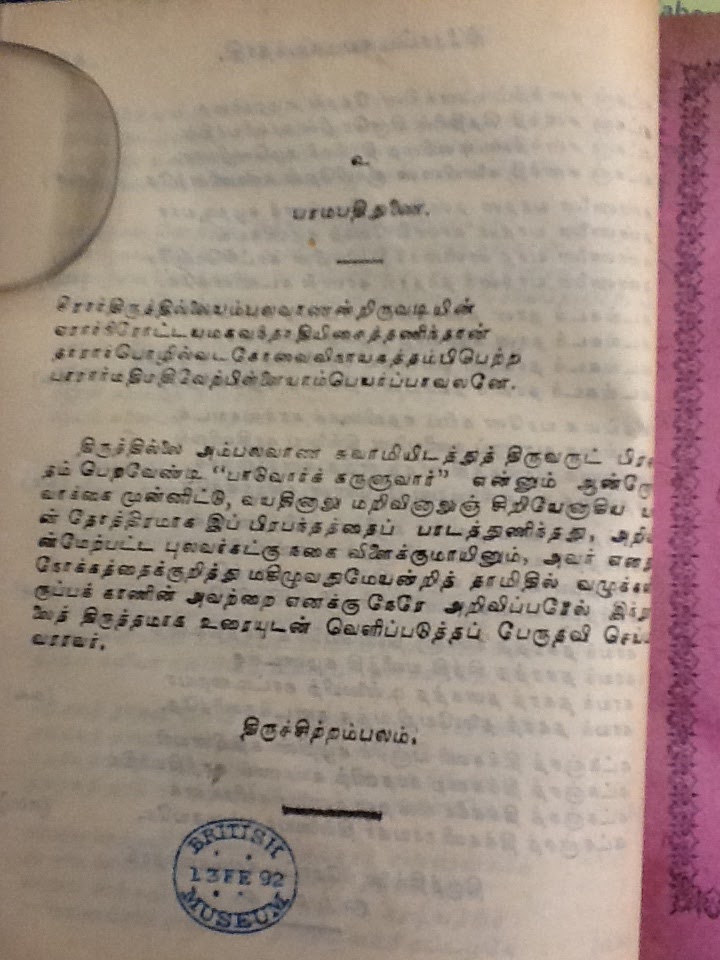 உ
பரமபதிதுணை.
சீரார்திருத்தில்லையம்பலவாணன்றிருவடியின்
தாரார்பொழில்வடகோவைவிநாயகத்தம்பிபெற்ற
பாரார்மதிமதிவேற்பிள்ளையாம்பெயர்ப்பாவலனே.
திருத்தில்லை அம்பலவாண சுவாமியிடத்துத் திருவருட்
தம் பெறவேண்டி “பாடுவோர்க் கருளுவார்” என்னும் ஆன்றோ
வாக்கை முன்னிட்டு, வயதினாலு மறிவினாலுஞ் சிறியேனாகிய
ன் தோத்திரமாக இப் பிரபந்தத்தைப் பாடத்துணிந்தது,
ன்மேற்பட்ட புலவர்கட்கு நகை விளைக்குமாயினும், அவர்
நோக்கத்தைக்குறித்து மகிழுவதுமேயன்றித் தாமிதில்
ருப்பக் காணின் அவற்றை எனக்கு நேரே அறிவிப்பரேல்
லைத் திருத்தமாக உரையுடன் வெளிப்படுத்தப் பேருதவி
வராவர்.
திருச்சிற்றம்பலம்.
BRITISH
13 FE 92
MUSEUM